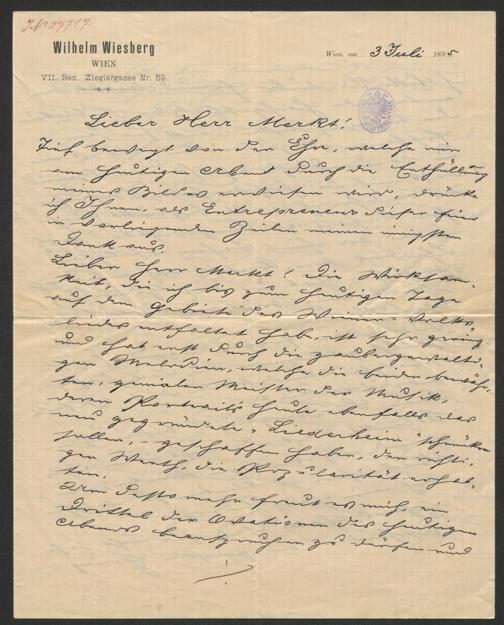 J.N. 27717
Wilhelm Wiesberg
WIEN
VII. Bez., Zieglergasse Nr. 59.
Wien, am 3 Juli 1895
Lieber Herr Merkt!
Tief bewegt von der Ehre, welche mir
am heutigen Abend durch die Enthüllung
meines Bildes erwiesen wird, drücke
ich Ihnen, als Entrepreneur dieser Feier
in vorliegenden Zeilen meinen innigsten
Dank aus.
Lieber Herr Merkt! Die Wirksam-
keit, die ich bis zum heutigen Tage
auf dem Gebiete des Wiener Volks-
liedes entfaltet habe, ist sehr gering
und hat erst durch die zaubergewalti-
gen Melodien, welche die beiden bewähr-
ten, genialen Meister der Musik,
deren Portraits heute ebenfalls das
neu gegründete "Liederheim" schmücken
sollen, geschaffen haben, den richti-
gen Werth, die Popularität erhal-
ten.
Um desto mehr freut es mich, ein
Drittel der Ovationen des heutigen
Abends beanspruchen zu dürfen und